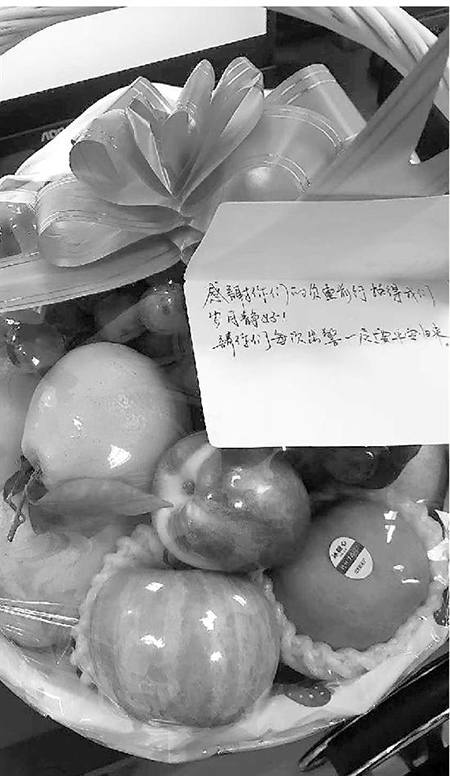 AOC
感謝你们的负重前行换得我们
岁月静好!
請你们每次出警一定要平安归来。